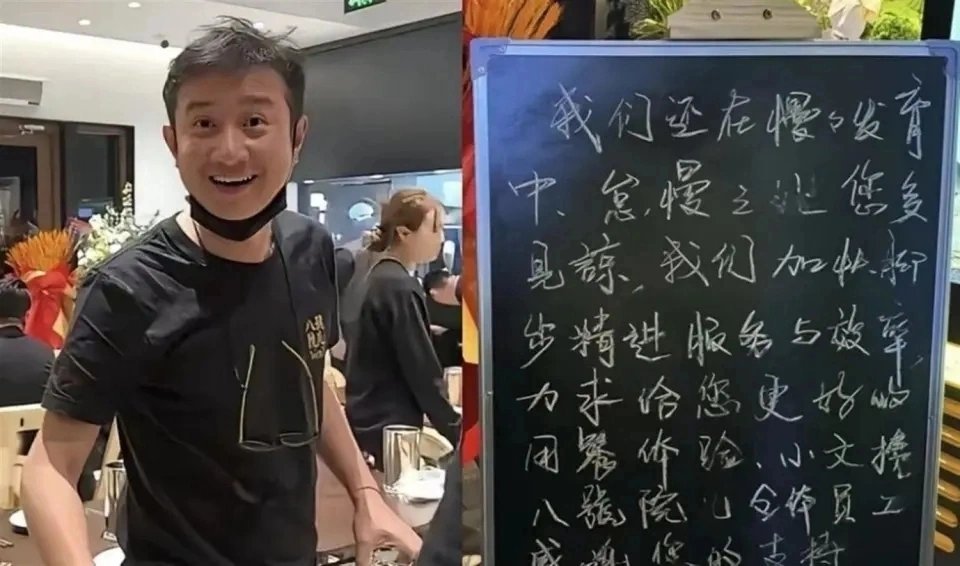 八號
院儿
我们还在慢々发育
中、怠慢之 您多
见谅,我们加快脚
步精进服务与效率,
力求给您更好的
用餐体验、小文携
八號院儿全体员工
感谢您的支持